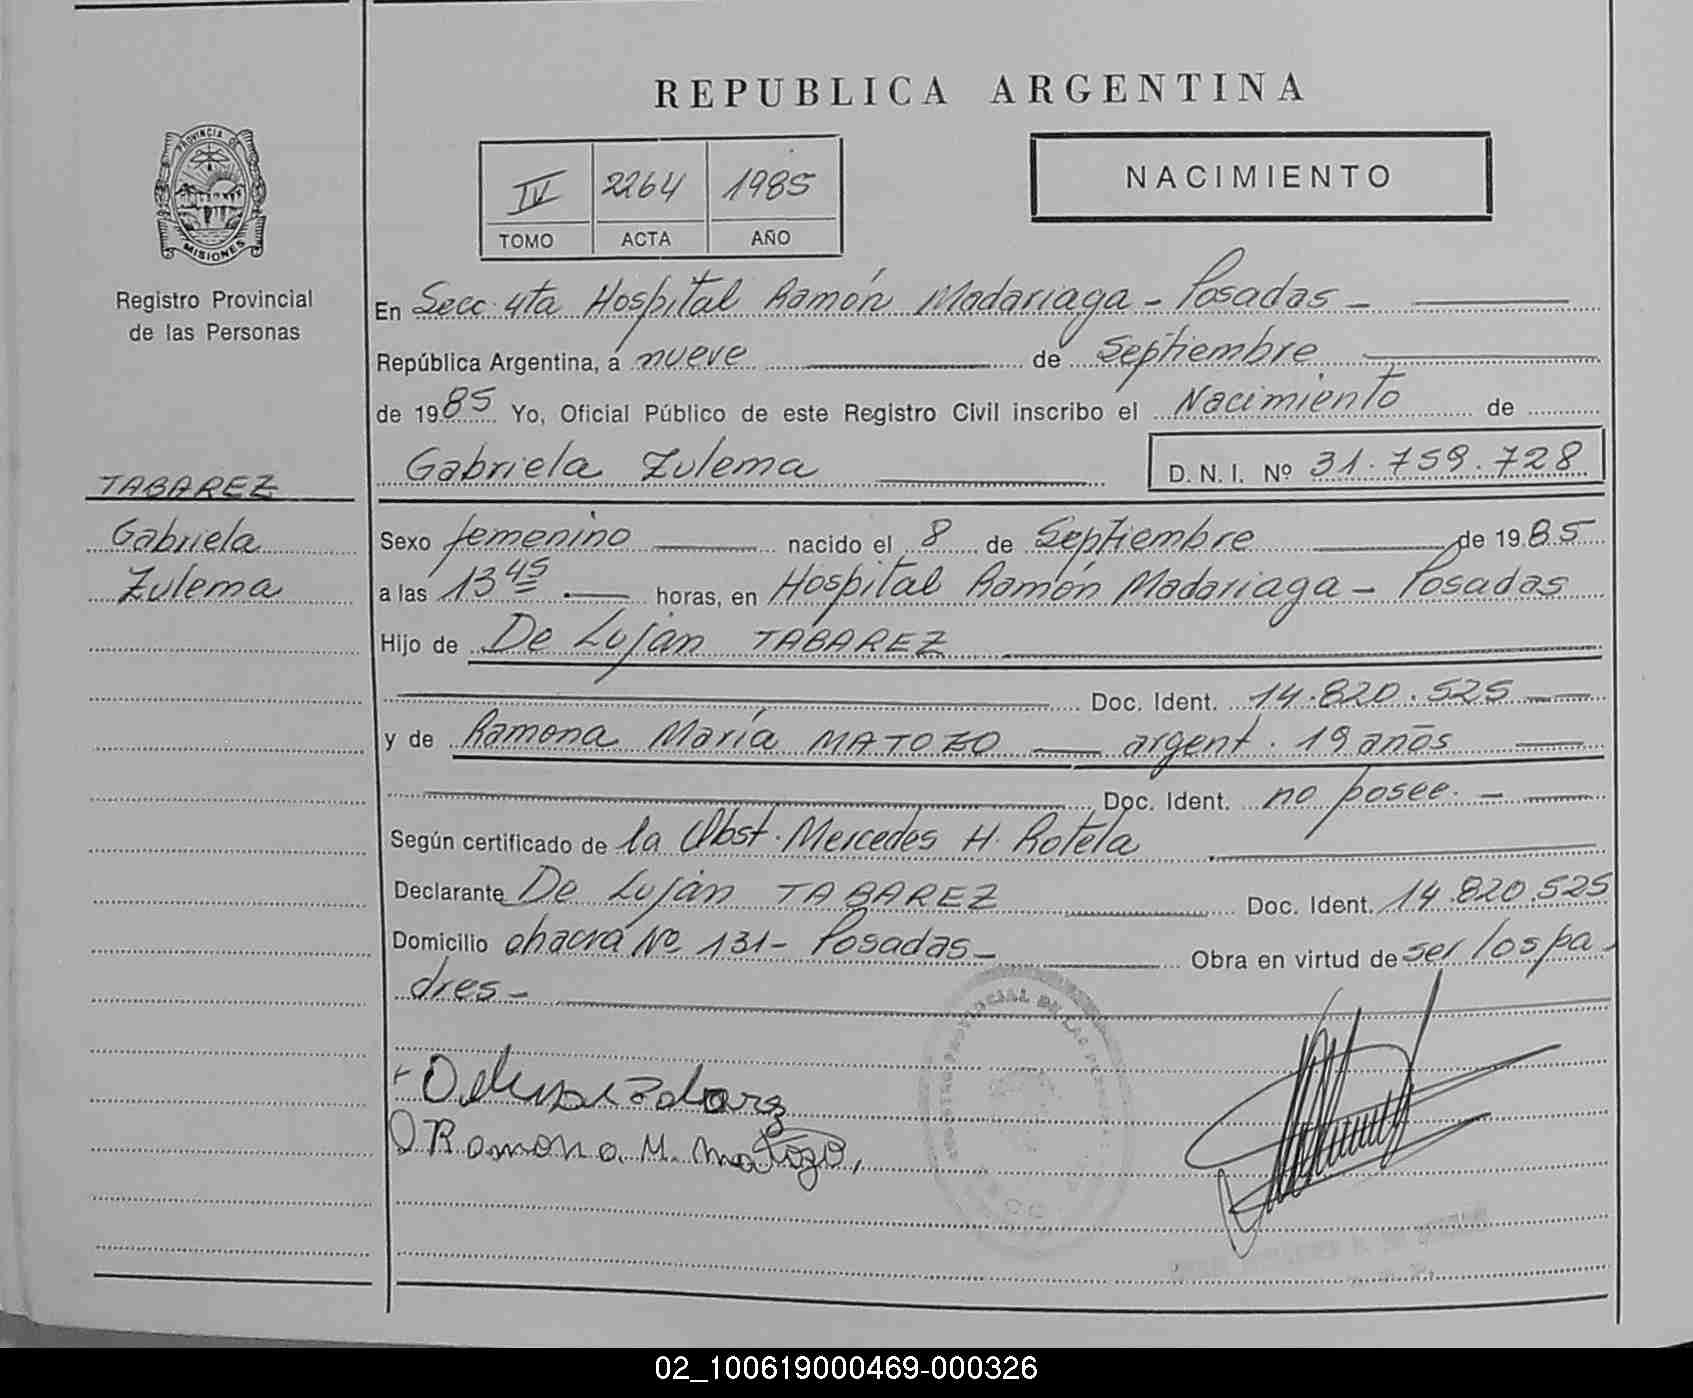 REPUBLICA ARGENTINA
PROVINCIA DE
MISIONES
Registro Provincial
de las Personas
IV 2264 1985
TOMO ACTA AÑO
NACIMIENTO
En Secc. 4ta Hospital Ramón Madariaga - Posadas -
República Argentina, a nueve de Septiembre
de 1985 Yo, Oficial Público de este Registro Civil inscribo el Nacimiento de
Gabriela Zulema D.N.I. Nº 31.759.728
TABAREZ
Gabriela
Zulema
Sexo femenino nacido el 8 de Septiembre de 1985
a las 13 45 horas, en Hospital Ramón Madariaga - Posadas
Hijo de De Luján TABAREZ
Doc. Ident. 14.820.525
y de Ramona María MATOZO argent. 19 años
Doc. Ident. no posee. -
Según certificado de la Obst. Mercedes H. Rotela
Declarante De Luján TABAREZ Doc. Ident. 14.820.525
Domicilio chacra Nº 131- Posadas - Obra en virtud de ser los pa-
dres -
Ramona M. Matozo,
02_100619000469-000326